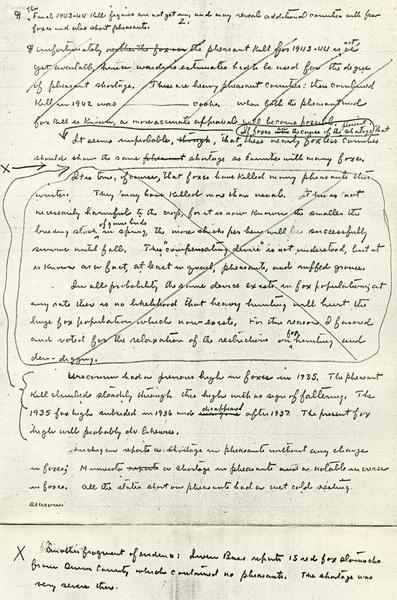 Final 1943-44 kill figures are not yet in, and may reveal additional counties with few
foxes and also short pheasants.
Unfortunately the pheasant kill for 1943-44 is not
yet available, hence wardens estimates had to be used for the degree
of pheasant shortage. These are heavy pheasant counties: their combined
kill in 1942 was ______ cocks. When both the pheasant and
fox kill is known, a more accurate appraisal will become possible.
If foxes are the cause of the present shortage
It seems improbable, though, that these nearly foxless counties
should show the same pheasant shortage as counties with many foxes.
X
It is true, of course, that foxes have killed many pheasants this
winter. They may have killed more than usual. This is not
necessarily harmful to the crop, for it is now known the smaller the
breeding stock of game birds in spring, the more chicks per hen will be successfully
summer until fall. This "compensating device" is not understood, but it
is known as a fact, at least in quail, pheasants, and ruffed grouse.
In all probability the same device exists in fox populations; at
any rate there is no likelihood that heavy hunting will hurt the
huge fox population which now exists. For this reason I favored
and voted for the relaxation of the restrictions on fox hunting and
den-digging.
Wisconsin had a previous high in foxes in 1935. The pheasant
kill climbed steadily through this high with no sign of faltering. The
1935 fox high subsided in 1936 and disappeared after 1937. The present fox
high will probably do likewise.
Michigan reports a shortage in pheasants without any change
in foxes; Minnesota reports a shortage in pheasants and a notable increase
in foxes. All the states short on pheasants had a wet cold nesting
season.
X Another fragment of evidence: Irven Buss reports 15 red fox stomachs
from Dunn County which contained no pheasants. The shortage was
very severe there.